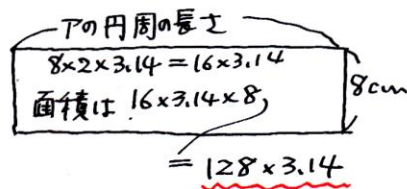 アの円周の長さ
8×2×3.14=16×3.14
面積は 16×3.14×8
8cm
= 128×3.14